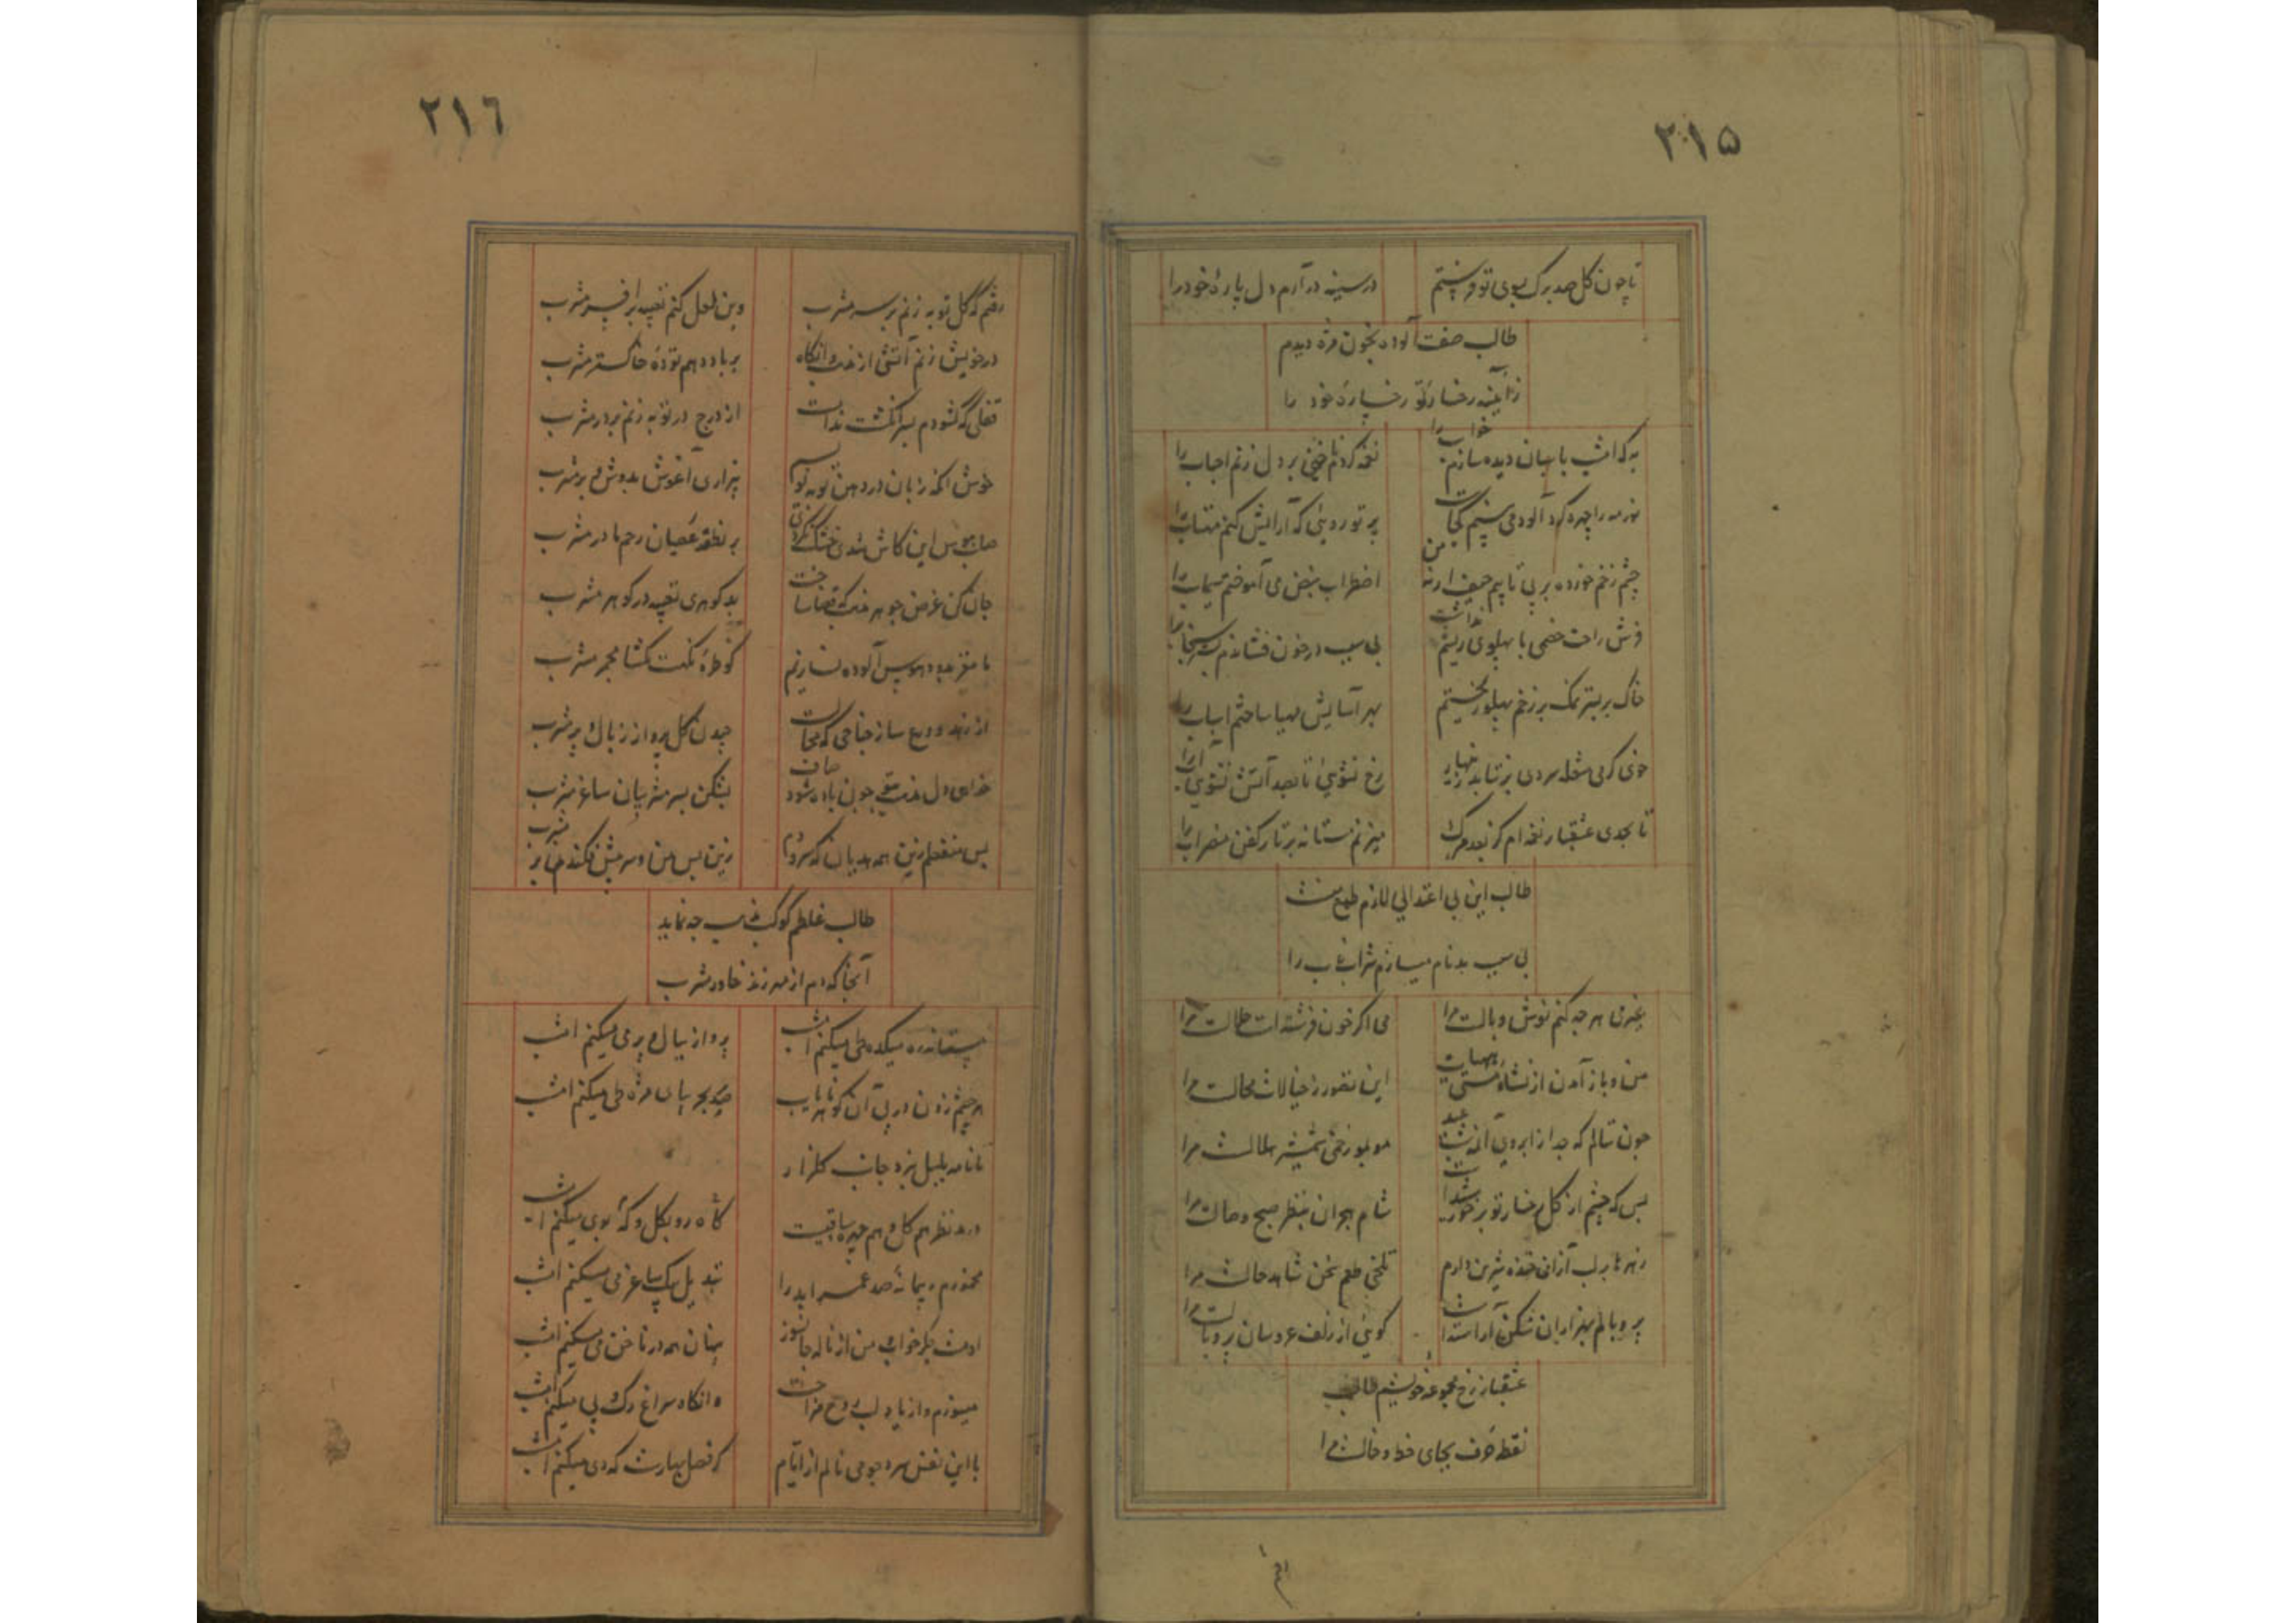 ٢١٥
تا چون گل صد برگ بسوی تو فرستم
در سینه در آرم دل پارهٔ خود را
طالب صفت آلوده بخون مژه دیدم
ز آیینه رخسار تو رخسارهٔ خود را
به که امشب پاسبان دیده سازم خواب را
نغمه کردم ناخنی بر دل زنم احباب را
بهر مه را چهره گرد آلود می بینم کجاست
پرتو رویی که آرایش کنم مهتاب را
چشم زخم خورده بر بی تابیم حیف ار نه من
اضطراب نبض می آموختم سیماب را
فرش راحت خصمی با پهلوی ریشم نداشت
بی سبب در خون فشاندم بستر سنجاب را
خاک بر بستر نمک بر زخم پهلو ریختم
بهر آسایش مهیا ساختم اسباب را
خوی گرمی شعله سردی بر نتابد زینهار
رخ نشویی تا بصد آتش نشویی آب را
تا بحدی عشقباز نغمه ام کز بعد مرگ
میزنم مستانه بر تار کفن مضراب را
طالب این بی اعتدالی لازم طبع منست
بی سبب بدنام میسازم شراب ناب را
بغیر می هر چه کنم نوش وبالست مرا
می اگر خون فرشته است حلالست مرا
من و باز آمدن از نشاه مستی هیهات
این تصور ز خیالات محالست مرا
چون ننالم که جدا از ابروی آن
مو بمو زخمی شمشیر هلالست مرا
بس که چشم از گل رخسار تو بر خور شدست
شام هجران بنظر صبح وصالست مرا
زهرها بر لب از آن خنده شیرین دارم
تلخی طعم سخن شاهد حالست مرا
پر و بالم بهزاران شکن آراسته است
گویی از زلف عروسان پر و بالست مرا
عشقباز رخ مجموعه خویشم طالب
نقطه حرف بجای خط و خالست مرا
٢١٦
رفتم که گل توبه زنم بر سر مشرب
وین لعل کنم تعبیه بر افسر مشرب
در خویش زنم آتشی از خفت و آنگاه
بر باد دهم تودهٔ خاکستر مشرب
قفلی که گشودم بسر انگشت ندامت
از درج در توبه زنم بر در مشرب
خوش آنکه زبان در دهن توبه نهم
بیزاری آغوش بدوش و بر مشرب
صاحب هوس این کاش شدی خشک
بر نطفه عصیان رحم مادر مشرب
جان کن غرض جوهر
بد گوهری تعبیه در گوهر مشرب
تا مغز بدود هوس آلوده نسازیم
گو طرهٔ نکهت نگشا مجمر مشرب
از زهد و ورع ساز جناحی که محالست
چیدن گل پرواز ز بال و پر مشرب
خواهی دل چون باده شود صاف
بشکن بسر مشربیان ساغر مشرب
بس منفعلم زین همه هذیان که سرودم
زین پس من و سر پیش فکندن ز مشرب
طالب غلطم کوکب نخشب چه نماید
آنجا که دم از مهر زند خاور مشرب
مستانه ره میکده طی میکنم امشب
پرواز ببال و پر می میکنم امشب
هر چشم زدن در پی آن گوهر نایاب
صد بحر بپای مژه طی میکنم امشب
تا نامه بلبل برد جانب گلزار
گاه رو بگل و گه بوی میکنم امشب
در مد نظر هم گل و هم چهره ساقیست
مخمورم و پیمانهٔ صد عمر ابد را
تبدیل بیک ساغر می میکنم امشب
او مست شکر خواب من از ناله جانسوز
پنهان همه در ناخن نی میکنم امشب
میسوزم و از یاد لب روح مزاجت
وانگاه سراغ رگ و پی میکنم امشب
با این نفس سرد چو می نالم از ایام
گر فصل بهارست که دی میکنم امشب